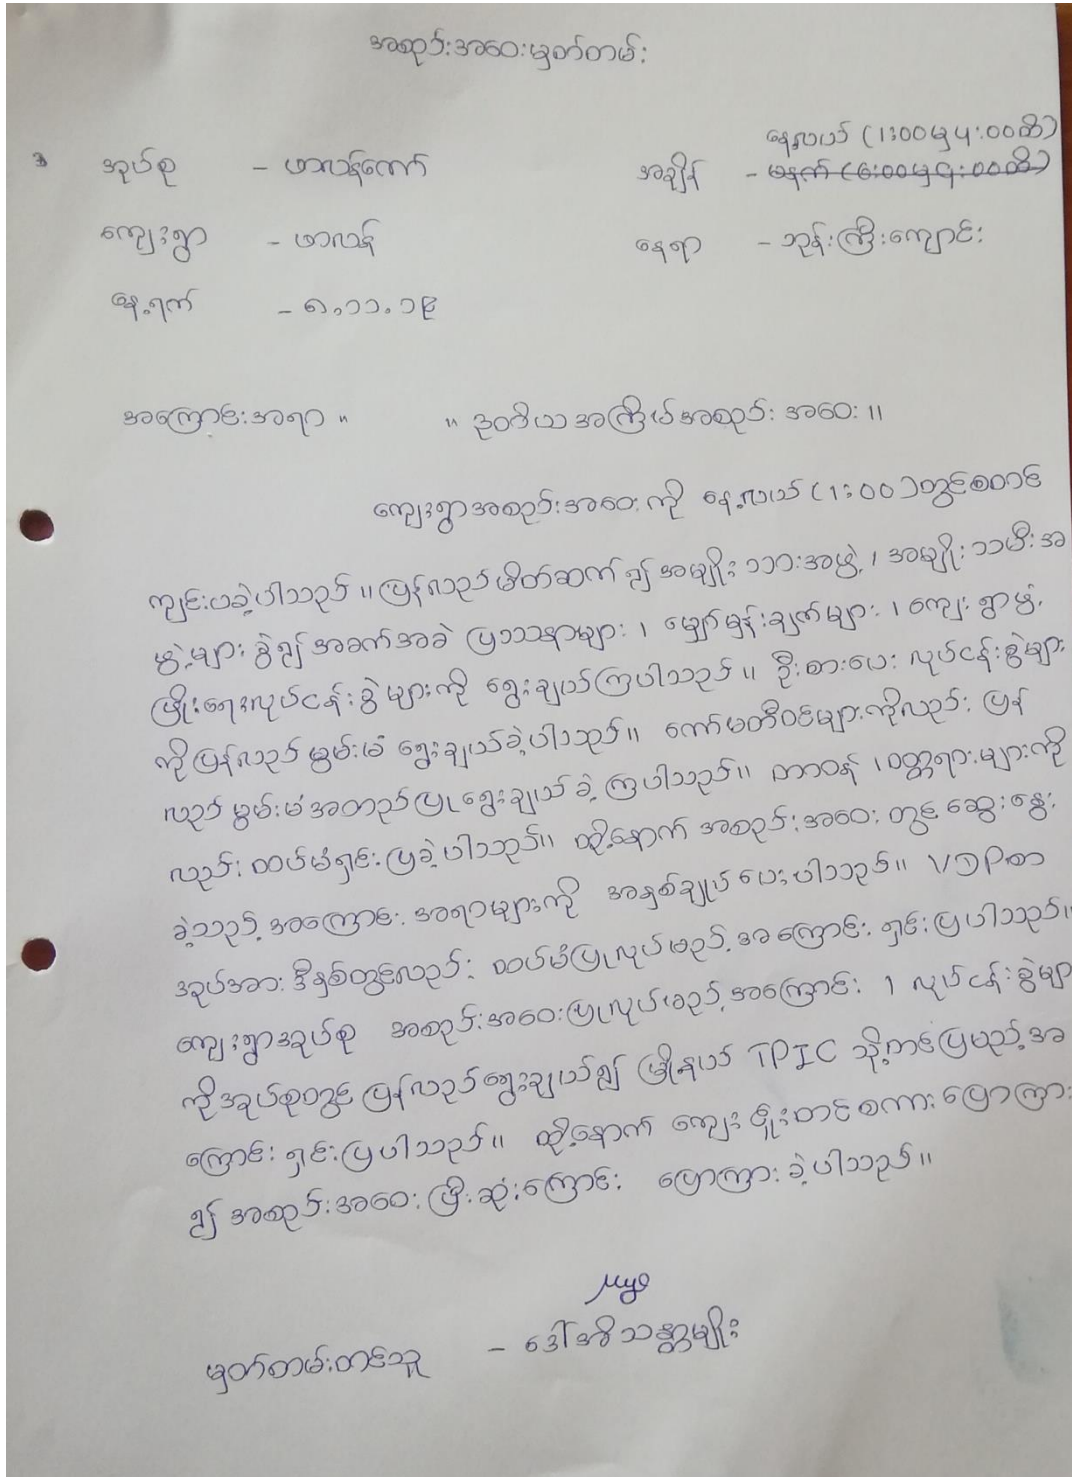 အစည်းအဝေးမှတ်တမ်း
နေ့လယ် (1:00 မှ ၄:၀၀ ထိ)
အုပ်စု - ဟာလန်ကော် အချိန် - မနက် (6:00 မှ ၎:၀၀ ထိ)
ကျေးရွာ - ဟာလန် နေရာ - ဘုန်းကြီးကျောင်း
နေ့ရက် - ၈.၁၁.၁၉
အကြောင်းအရာ " " ဒုတိယအကြိမ်အစည်းအဝေး ။
ကျေးရွာအစည်းအဝေးကို နေ့လယ် (1:00) တွင်စတင်
ကျင်းပခဲ့ပါသည် ။ ပြန်လည်မိတ်ဆက်၍ အမျိုးသားအဖွဲ့ ၊ အမျိုးသမီးအ
ဖွဲ့များ ခွဲ၍ အခက်အခဲ ပြဿနာများ ၊ မျှော်မှန်းချက်များ ၊ ကျေးရွာဖွံ့
ဖြိုးရေးလုပ်ငန်းခွဲများကို ရွေးချယ်ကြပါသည် ။ ဦးစားပေး လုပ်ငန်းခွဲများ
ကိုပြန်လည်မွမ်းမံ ရွေးချယ်ခဲ့ပါသည် ။ ကော်မတီဝင်များကိုလည်း ပြန်
လည်မွမ်းမံအတည်ပြုရွေးချယ်ခဲ့ကြပါသည် ။ တာဝန် ၊ ဝတ္တရားများကို
လည်း ထပ်မံရှင်းပြခဲ့ပါသည် ။ ထို့နောက် အစည်းအဝေးတွင် ဆွေးနွေး
ခဲ့သည့် အကြောင်းအရာများကို အနှစ်ချုပ်ပေးပါသည် ။ VDP စာ
အုပ်အား ဒီနှစ်တွင်လည်း ထပ်မံပြုလုပ်မည့်အကြောင်း ရှင်းပြပါသည် ။
ကျေးရွာအုပ်စု အစည်းအဝေးပြုလုပ်မည့်အကြောင်း ၊ လုပ်ငန်းခွဲများ
ကိုအုပ်စုတွင် ပြန်လည်ရွေးချယ်၍ မြို့နယ် TPIC သို့တင်ပြမည့်အ
ကြောင်း ရှင်းပြပါသည် ။ ထို့နောက် ကျေးဇူးတင်စကားပြောကြား
၍ အစည်းအဝေးပြီးဆုံးကြောင်း ပြောကြားခဲ့ပါသည် ။
မှတ်တမ်းတင်သူ - ဒေါ်အိသန္တာမျိုး